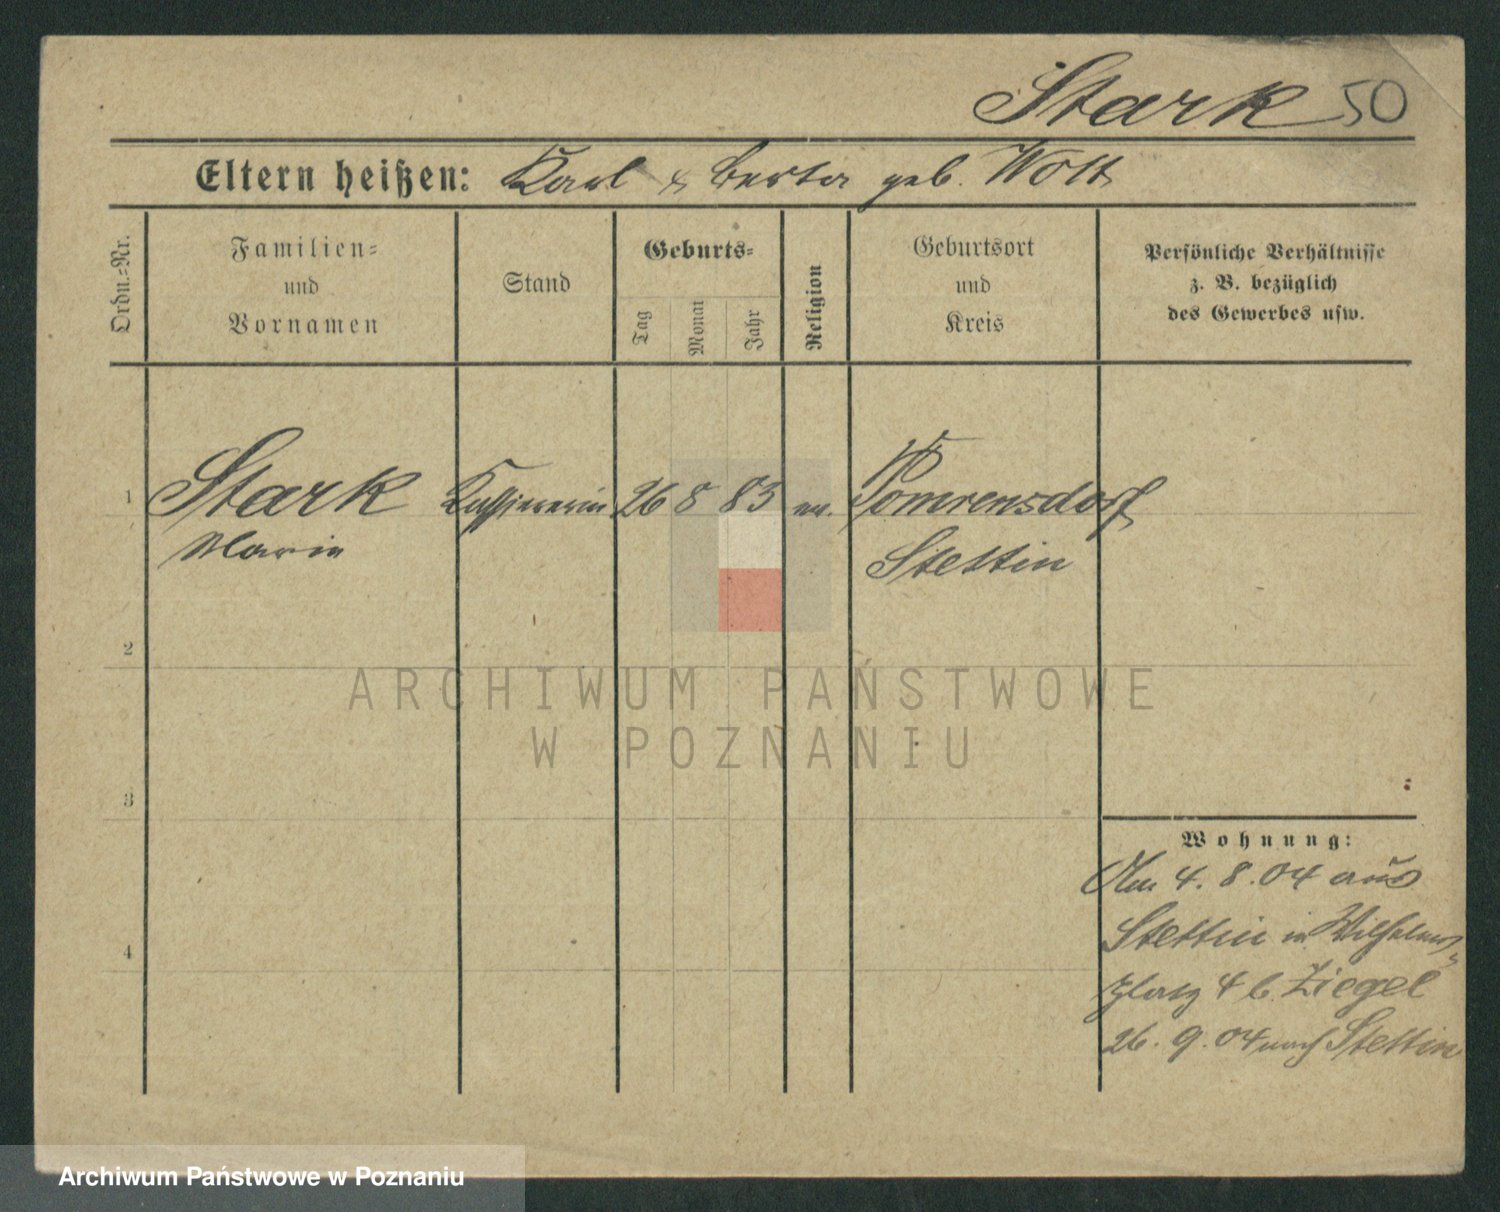 Stark 50
Eltern heißen: Karl & Berta geb. Wott
Ordn.-Nr.
Familien-
und
Vornamen
Stand
Geburts-
Tag
Monat
Jahr
Religion
Geburtsort
und
Kreis
Persönliche Verhältnisse
z. B. bezüglich
des Gewerbes usw.
1 Stark Kassiererin 26 8 83 ev. Pomrensdorf
Marie Stettin
2
ARCHIWUM PAŃSTWOWE
W POZNANIU
3
Wohnung:
Am 4. 8. 04 aus
Stettin in Wilhelms-
4
platz 4 b. Ziegel
26. 9. 04 nach Stettin
Archiwum Państwowe w Poznaniu